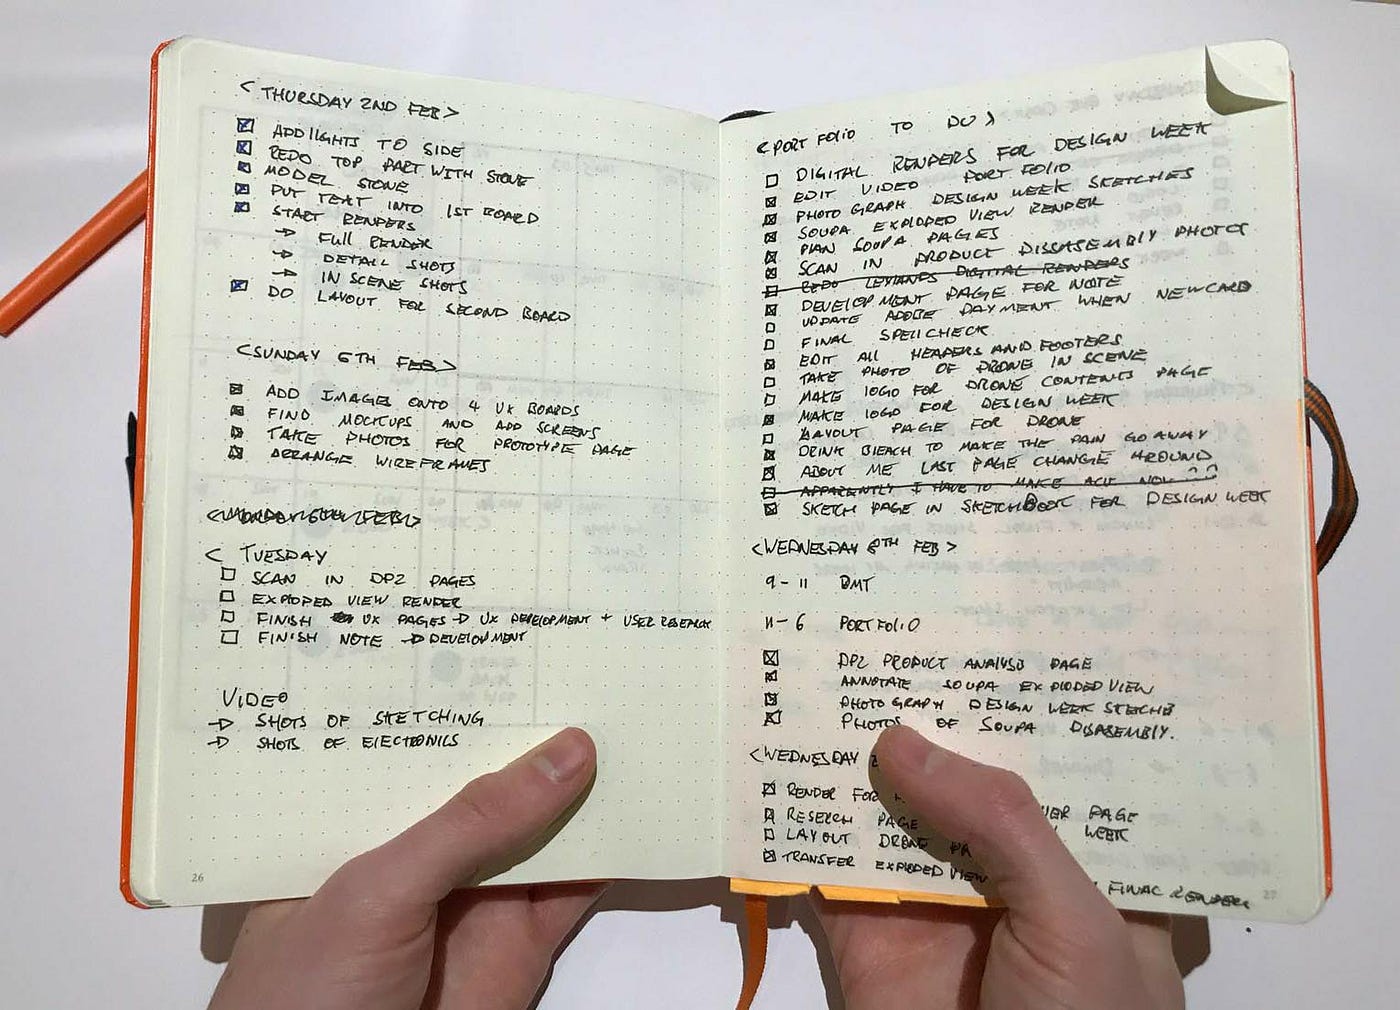 < THURSDAY 2ND FEB >
ADD LIGHTS TO SIDE
REDO TOP PART WITH STONE
MODEL STONE
PUT TEXT INTO 1ST BOARD
START RENDERS
→ FULL RENDER
→ DETAIL SHOTS
→ IN SCENE SHOTS
DO LAYOUT FOR SECOND BOARD
< SUNDAY 5TH FEB >
ADD IMAGES ONTO 4 UX BOARDS
FIND MOCKUPS AND ADD SCREENS
TAKE PHOTOS FOR PROTOTYPE PAGE
ARRANGE WIREFRAMES
< MONDAY 6TH FEB >
< TUESDAY
SCAN IN DP2 PAGES
EXPLODED VIEW RENDER
FINISH UX PAGES → UX DEVELOPMENT + USER RESEARCH
FINISH NOTE → DEVELOPMENT
VIDEO
→ SHOTS OF SKETCHING
→ SHOTS OF ELECTRONICS
26
< PORTFOLIO TO DO >
DIGITAL RENDERS FOR DESIGN WEEK
EDIT VIDEO PORTFOLIO
PHOTOGRAPH DESIGN WEEK SKETCHES
SOUPA EXPLODED VIEW RENDER
PLAN SOUPA PAGES
SCAN IN PRODUCT DISSASEMBLY PHOTOS
REDO DIGITAL RENDERS
DEVELOPMENT PAGE FOR NOTE
UPDATE ADOBE PAYMENT WHEN NEW CARD
FINAL SPELLCHECK
EDIT ALL HEADERS AND FOOTERS
TAKE PHOTO OF DRONE IN SCENE
MAKE LOGO FOR DRONE CONTENTS PAGE
MAKE LOGO FOR DESIGN WEEK
LAYOUT PAGE FOR DRONE
DRINK BLEACH TO MAKE THE PAIN GO AWAY
ABOUT ME LAST PAGE CHANGE AROUND
APPARENTLY I HAVE TO MAKE NOW ^^
SKETCH PAGE IN SKETCHBOOK FOR DESIGN WEEK
< WEDNESDAY 8TH FEB >
9 - 11 DMT
11 - 6 PORTFOLIO
DP2 PRODUCT ANALYSIS PAGE
ANNOTATE SOUPA EXPLODED VIEW
PHOTOGRAPH DESIGN WEEK SKETCHB
PHOTOS OF SOUPA DISASEMBLY.
< WEDNESDAY
RENDER FOR PAGE
RESERCH PAGE WEEK
LAYOUT DRONE
TRANSFER EXPLODED VIEW FINAL RENDER
27